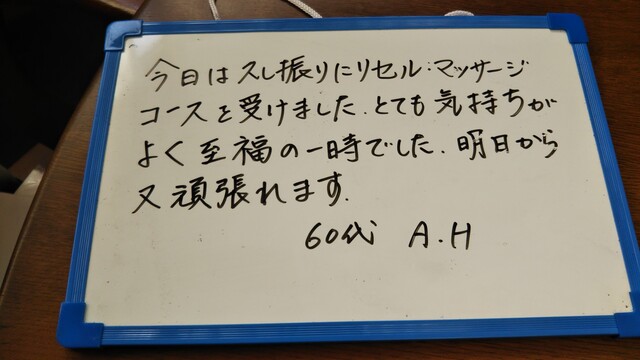 今日は久し振りにリセル・マッサージ
コースを受けました.とても気持ちが
よく至福の一時でした.明日から
又頑張れます.
60代 A.H